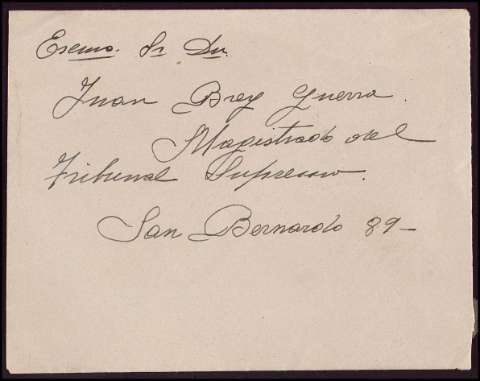 Exemo. Sr. Dn.
Juan Brey Guerra.
Magistrado del
Tribunal Supremo.
San Bernardo 89-